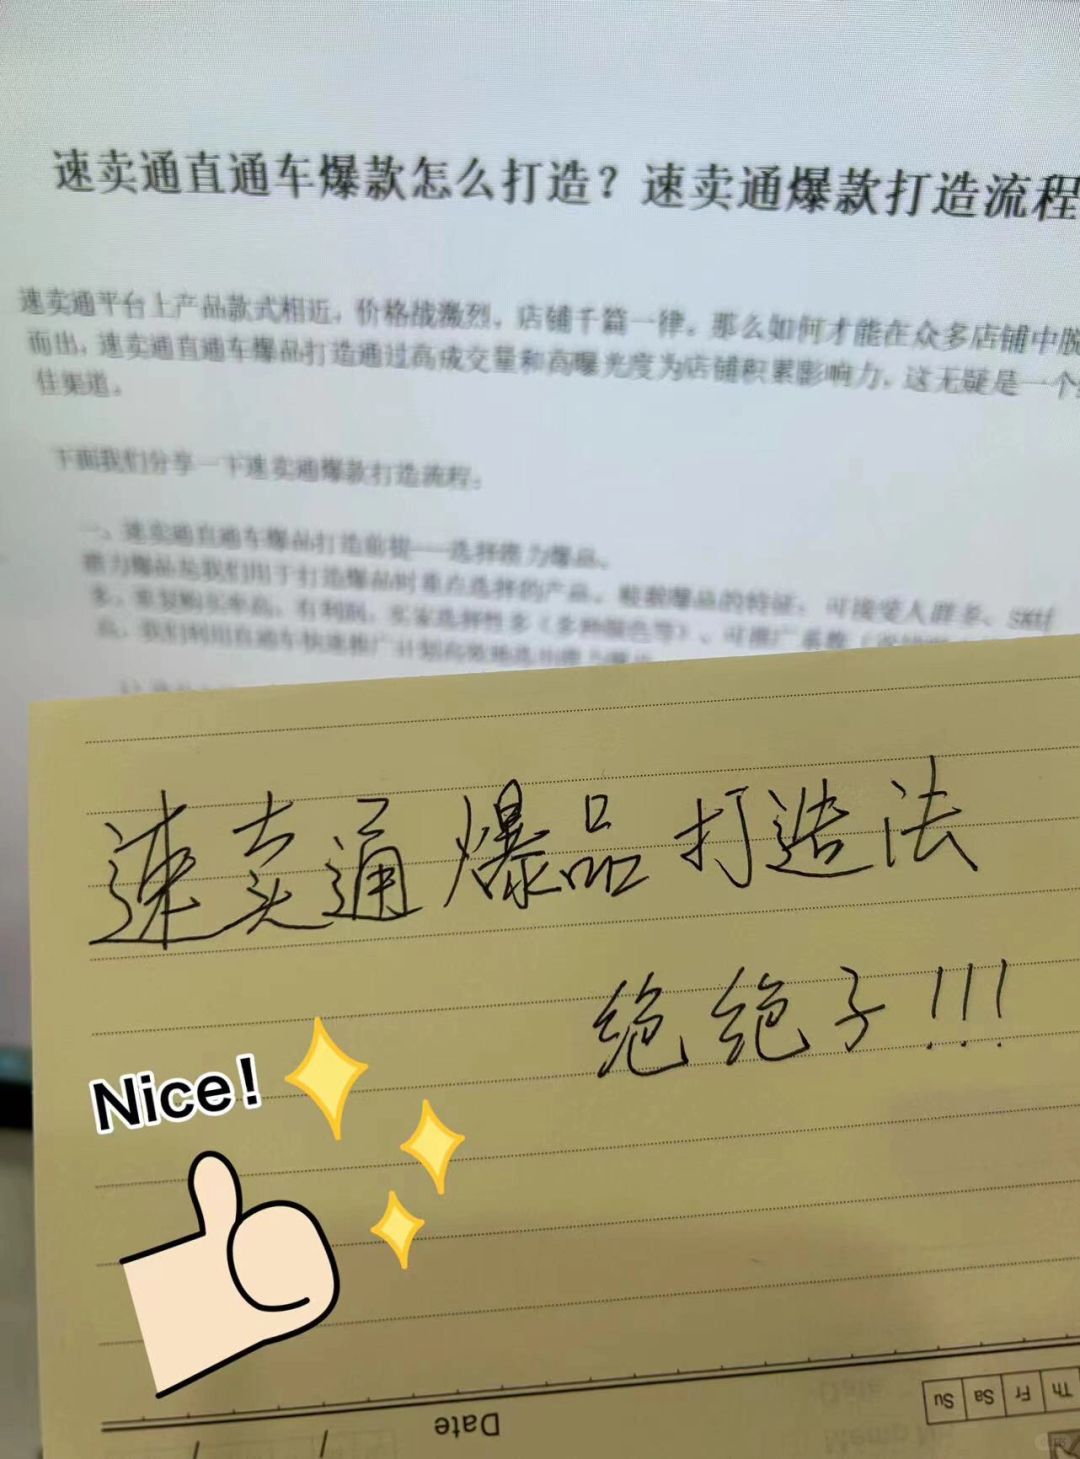 速卖通直通车爆款怎么打造？速卖通爆款打造流程
速卖通平台上产品款式相近，价格战激烈，店铺千篇一律。那么如何才能在众多店铺中脱
而出，速卖通直通车爆品打造通过高成交量和高曝光度为店铺积累影响力，这无疑是一个
佳渠道。
下面我们分享一下速卖通爆款打造流程：
一、速卖通直通车爆品打造前提——选择潜力爆品。
潜力爆品是我们用于打造爆品时重点选择的产品。根据爆品的特征：可接受人群多、SKU
多、重复购买率高、有利润、买家选择性多（多种颜色等）、可推广系数
高，我们利用直通车快速推广计划高效地选出潜力爆品
速卖通爆品打造法
绝绝子!!!
Nice!
Date
Su Sa Fr Th